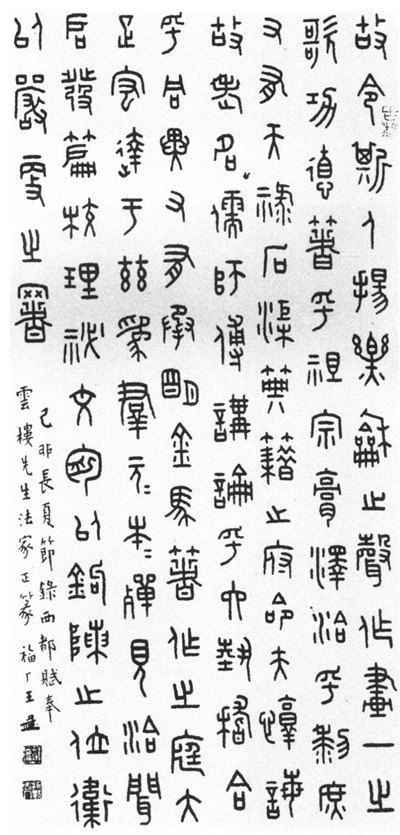 故令斯人揚樂龢之聲作畫一之
歌功德著乎祖宗膏澤洽乎黎庶
又有天祿石渠典籍之府命夫惇誨
故老名儒師傅講論乎六藝稽合
乎同異又有承明金馬著作之庭大
疋宏達于茲為群元元本本殫見洽聞
启發篇校理祕文周以鉤陳之位衛
以嚴更之署
己卯長夏節錄西都賦奉
雲樓先生法家正篆 福厂王禔